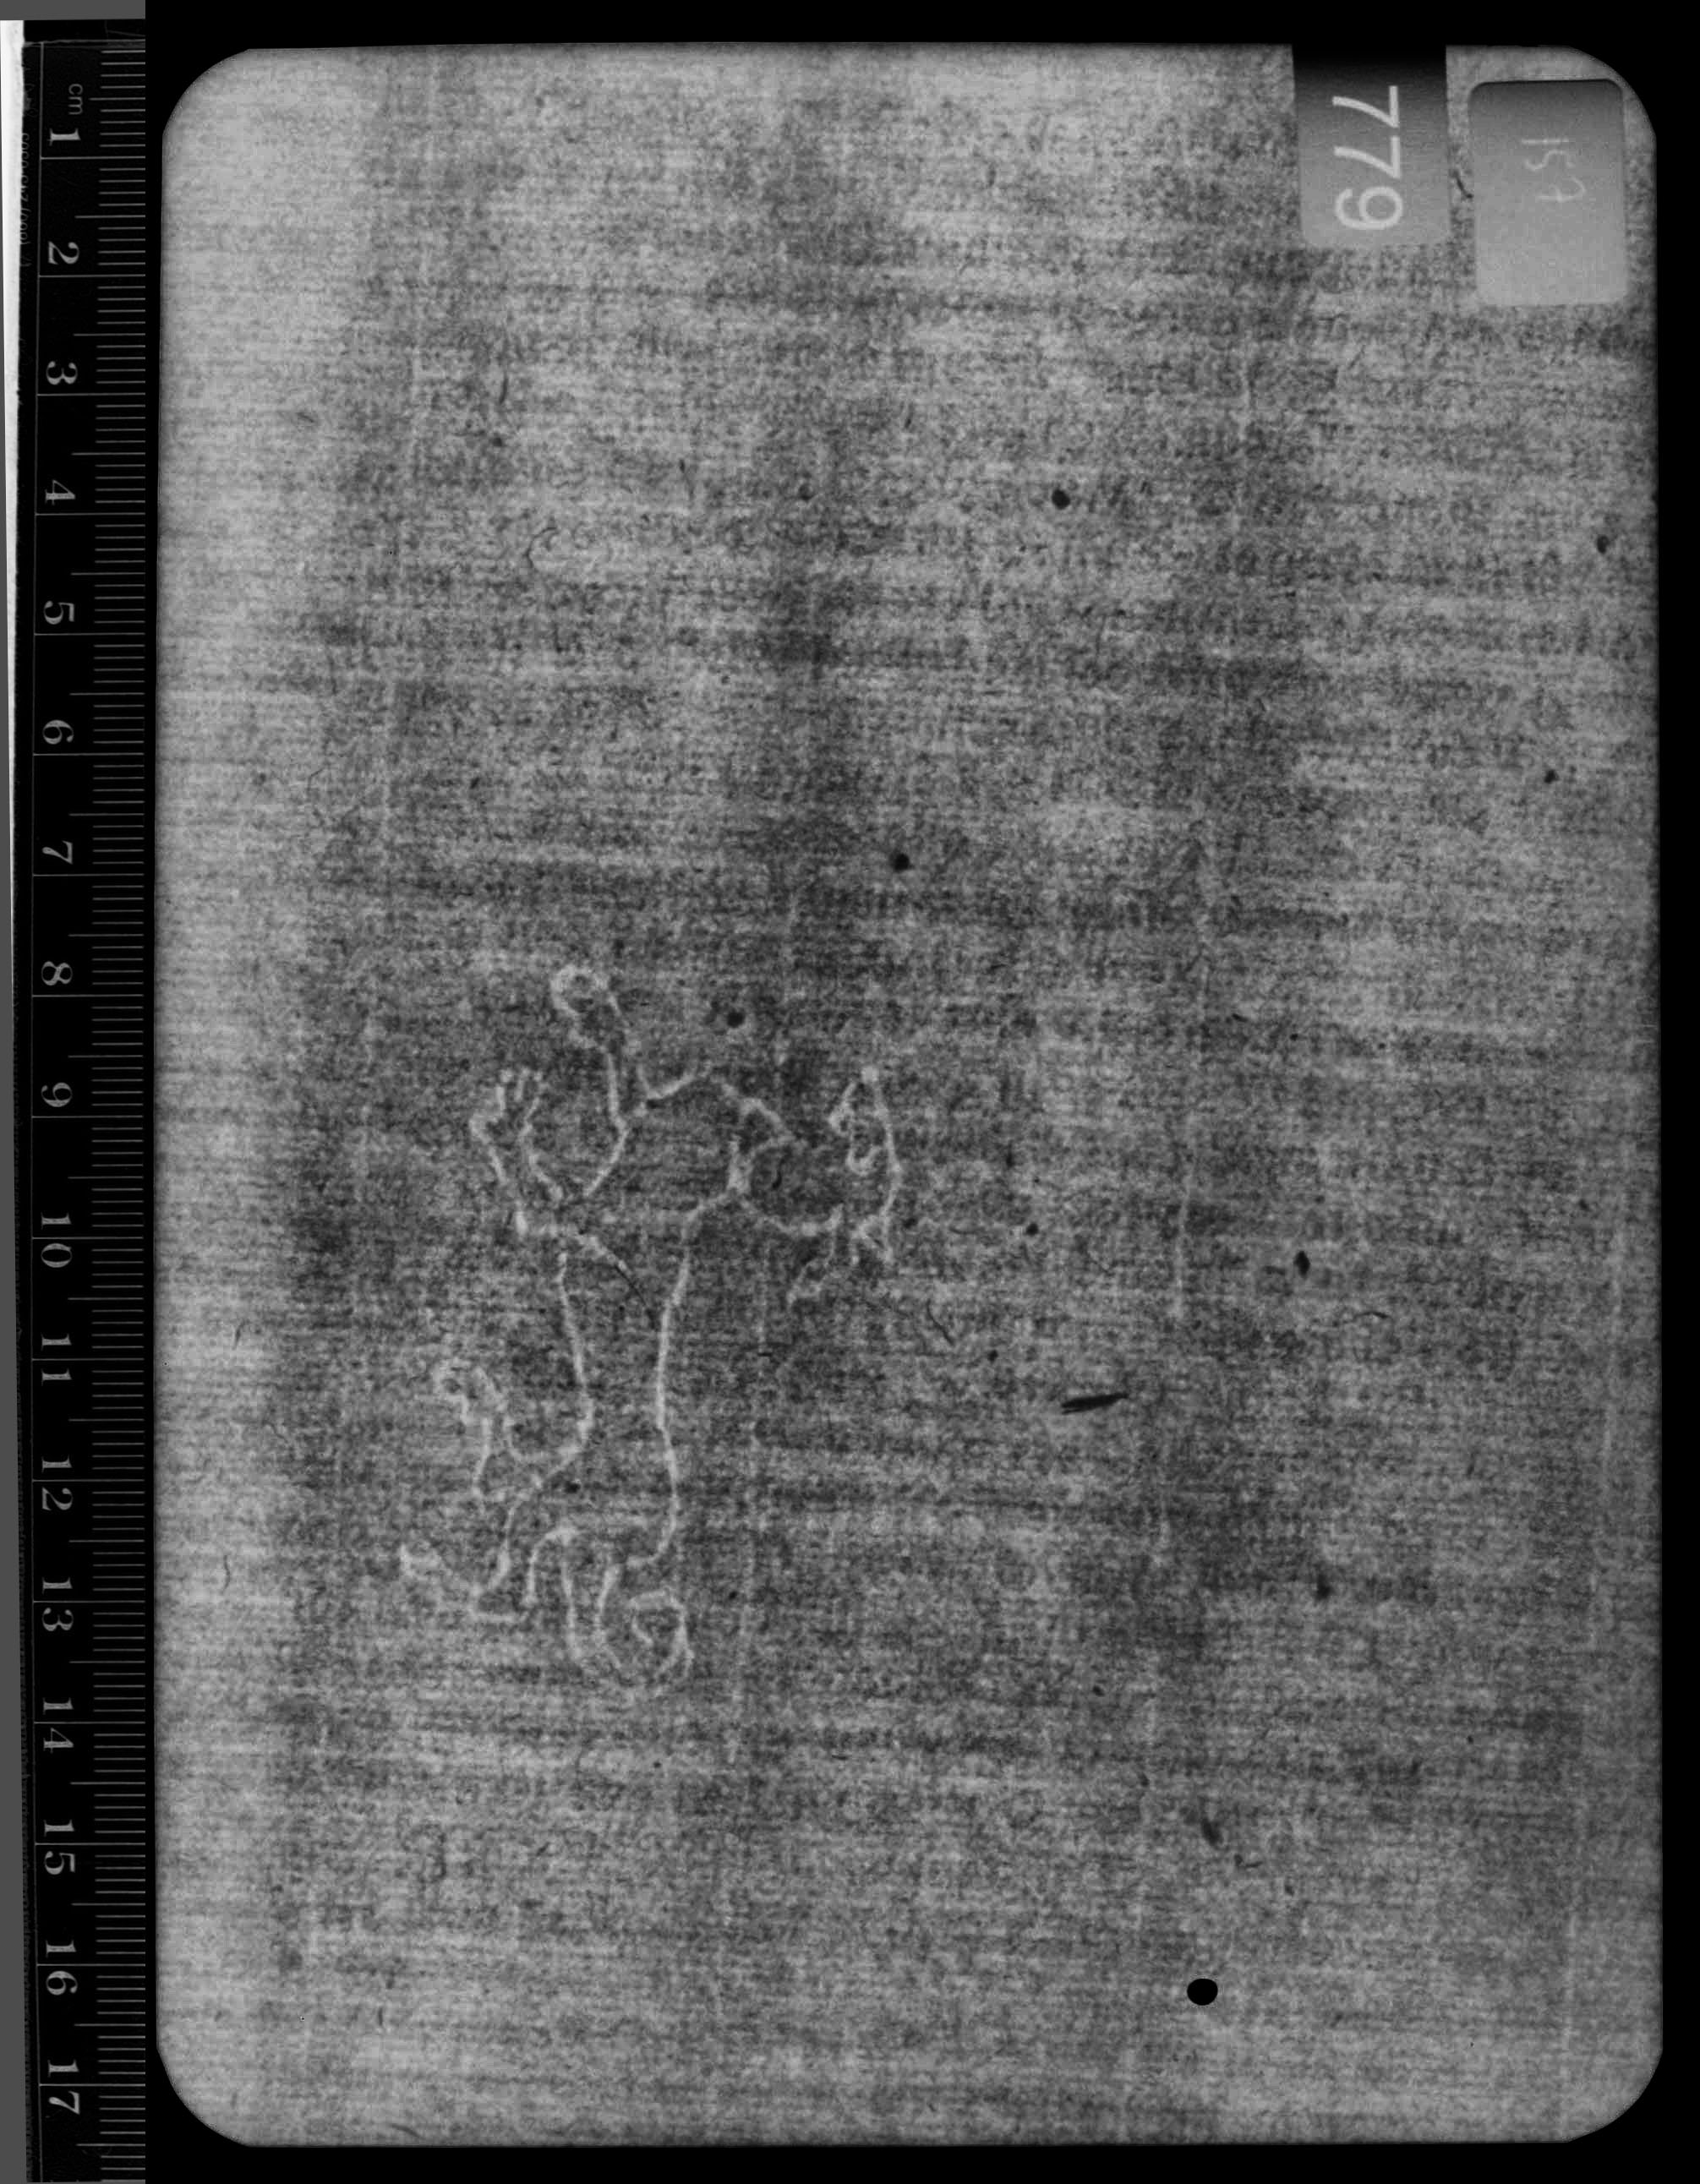 779
157
cm 1 2 3 4 5 6 7 8 9 10 11 12 13 14 15 16 17